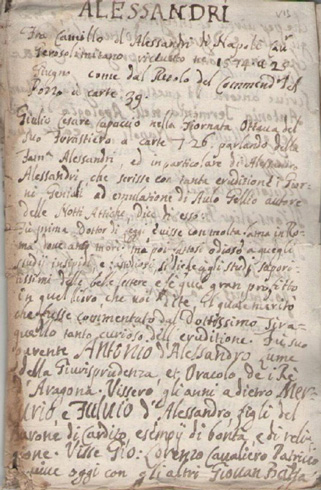 ALESSANDRI
Fra Camillo d'Alessandri di Napoli Cav.r
Gerosolimitano ricevuto nel
Giugno come dal Rolo del Commend.r del
Pozzo a carte 39.
Giulio Cesare Capaccio nella Giornata Ottava del
suo forastiero a carte 726. parlando della
fam.a Alessandri, ed in particolare di Alessandro
Alessandri, che scrisse con tanta eruditione i Gior-
ni Geniali ad emulazione di Aulo Gellio autore
delle Notti Attiche, dice di esso:
Dottor di leggi e visse con molta fama in Ro-
ma, dove anco morì, ma poi fattosi odioso a quegli
studii insipidi e si diede agli studi sapori-
tissimi delle belle lettere e fe quel gran profitto
in quel libro, che voi dite, il quale meritò
che fusse commentato dal Dottissimo Tira-
quello tanto curioso dell'eruditione. Fu suo
parente Antonio d'Alessandro lume
della Giurisprudenza et Oracolo de i Rè
d'Aragona. Vissero gli anni a dietro Mer-
curio, e Fulvio d'Alessandro figli del
Barone di Cardito, esempij di bontà, e di reli-
gione. Visse Gio: Lorenzo Cavaliero Patricio
vive oggi con gli altri Giovan Batta